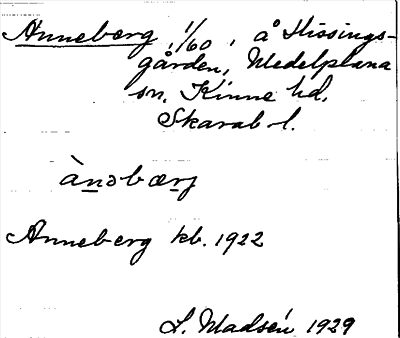 Anneberg, 1/60, å Hissings-
gården, Medelplana
sn. Kinne hd.
Skarab. l.
ànəbærj
Anneberg kb. 1922
L. Madsén 1929